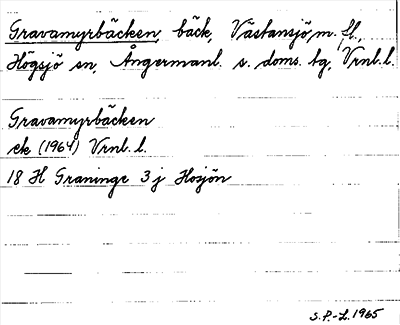 Gravamyrbäcken, bäck, Västansjö, m. fl.,
Högsjö sn, Ångermanl. s. doms. hg, Vrnl. l.
Gravamyrbäcken
ek (1964) Vrnl. l.
18 H Graninge 3 j Hosjön
S.P.-L. 1965